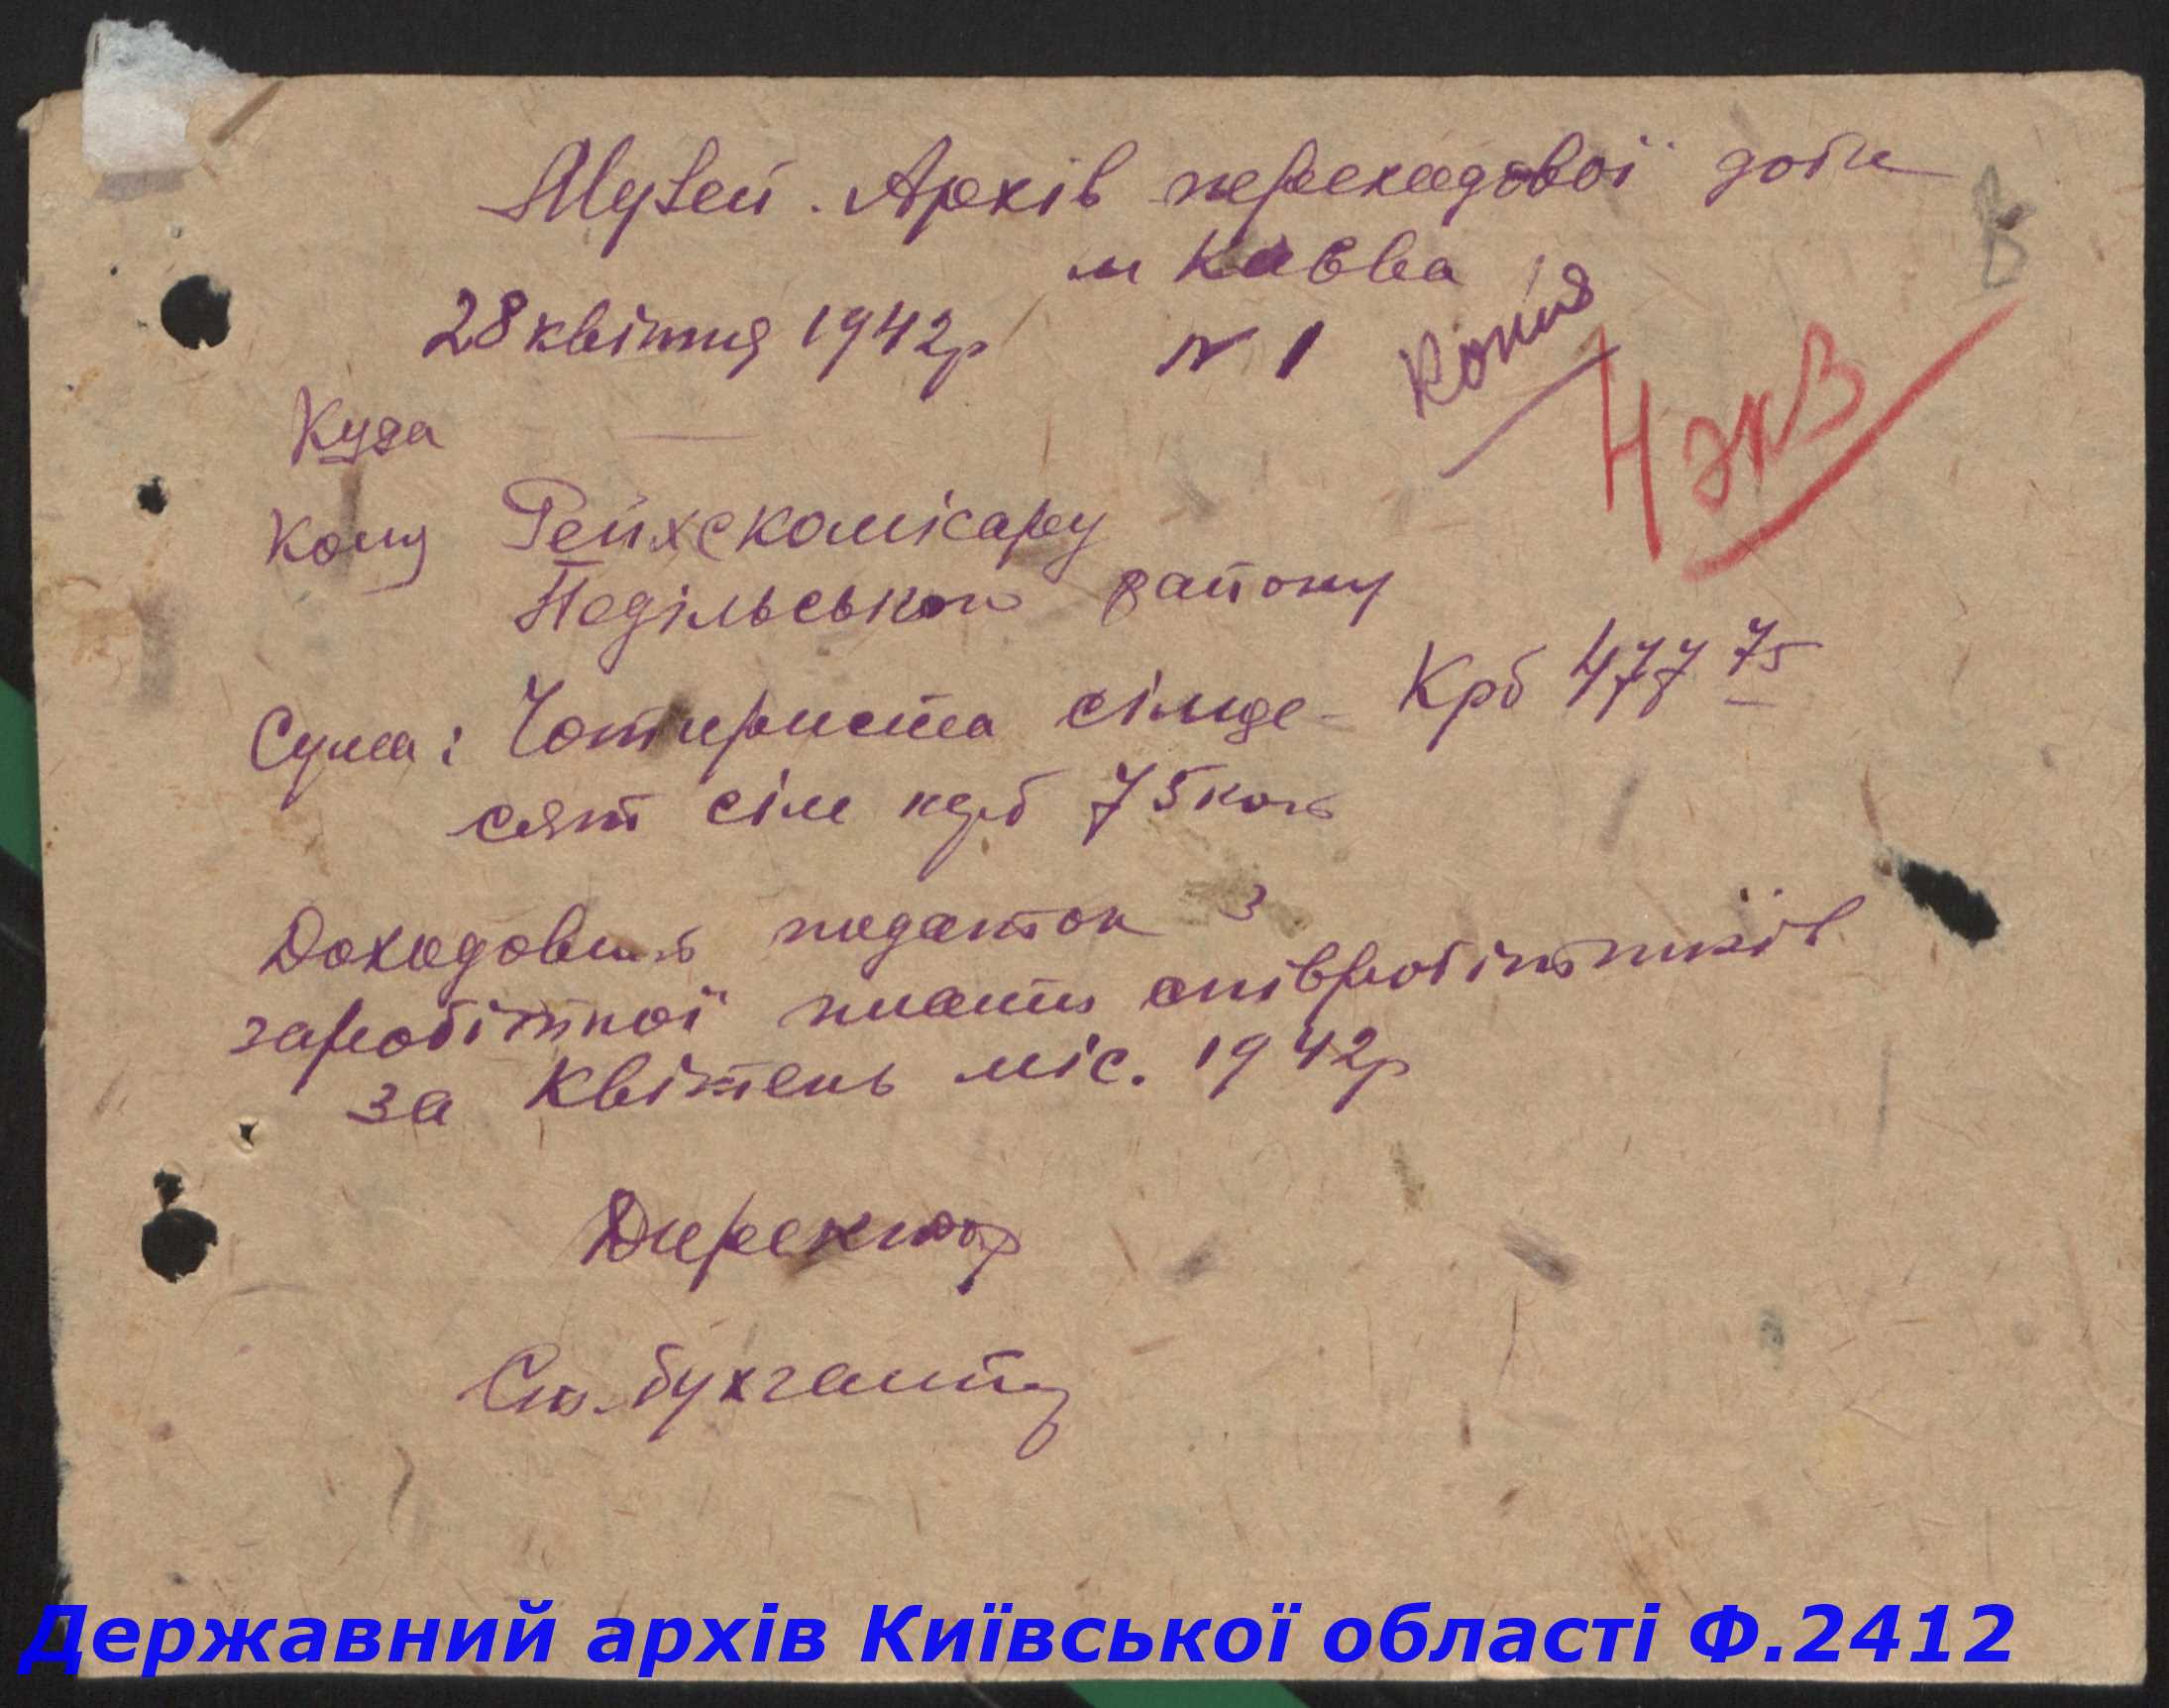 Музей. Архів переходової доби
м Києва
28 квітня 1942р № 1
Копія
4 экз
В
Куда
Кому Рейхскомісару
Подільського району
Сума: Чотириста сімде- Крб 477 75
сят сім крб 75 коп
Доходовий податок з
заробітної платні співробітників
за квітень міс. 1942р
Директор
Ст. бухгалтер
Державний архів Київської області Ф.2412